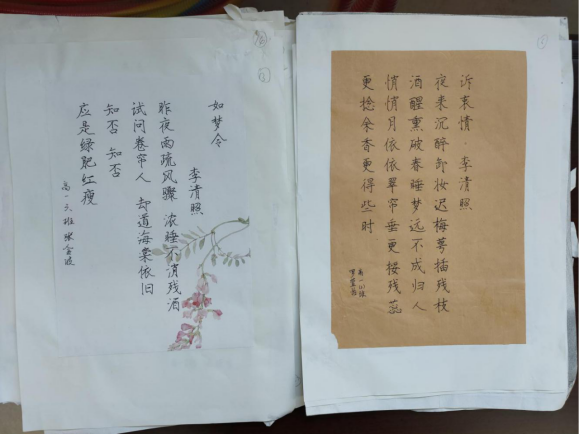 如梦令
李清照
昨夜雨疏风骤 浓睡不消残酒
试问卷帘人 却道海棠依旧
知否 知否
应是绿肥红瘦
高一六班
诉衷情·李清照
夜来沉醉卸妆迟梅萼插残枝
酒醒熏破春睡梦远不成归人
悄悄月依依翠帘垂更挼残蕊
更捻余香更得些时
高一